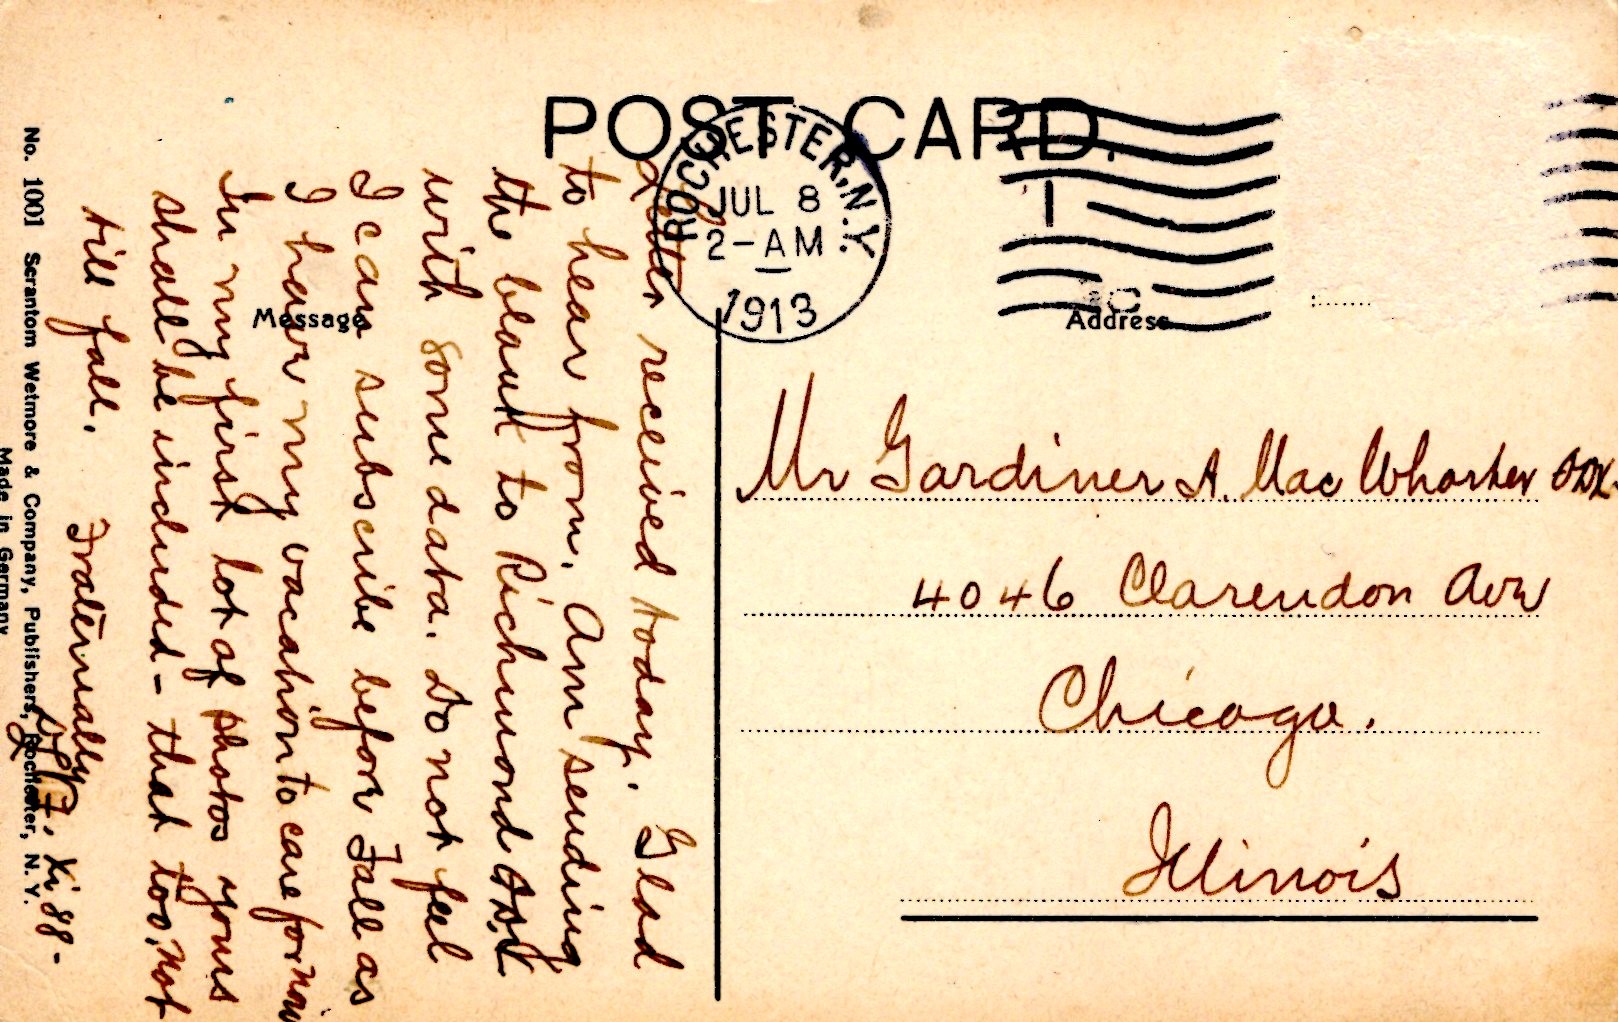 POST CARD.
ROCHESTER, N.Y.
JUL 8
2-AM
1913
1
Message
Address
Letter received today. Glad
to hear from. Am sending
the blank to Richmond
with some data. Do not feel
I can subscribe before Fall as
I have my vacation to care for now
In my first lot of photos yours
shall be included - that too, not
till fall.
Fraternally
Xi '88-
Mr Gardiner A. Mac Whorter
4046 Clarendon Ave
Chicago.
Illinois
No. 1001 Scrantom Wetmore & Company, Publishers, Rochester, N. Y.
Made in Germany